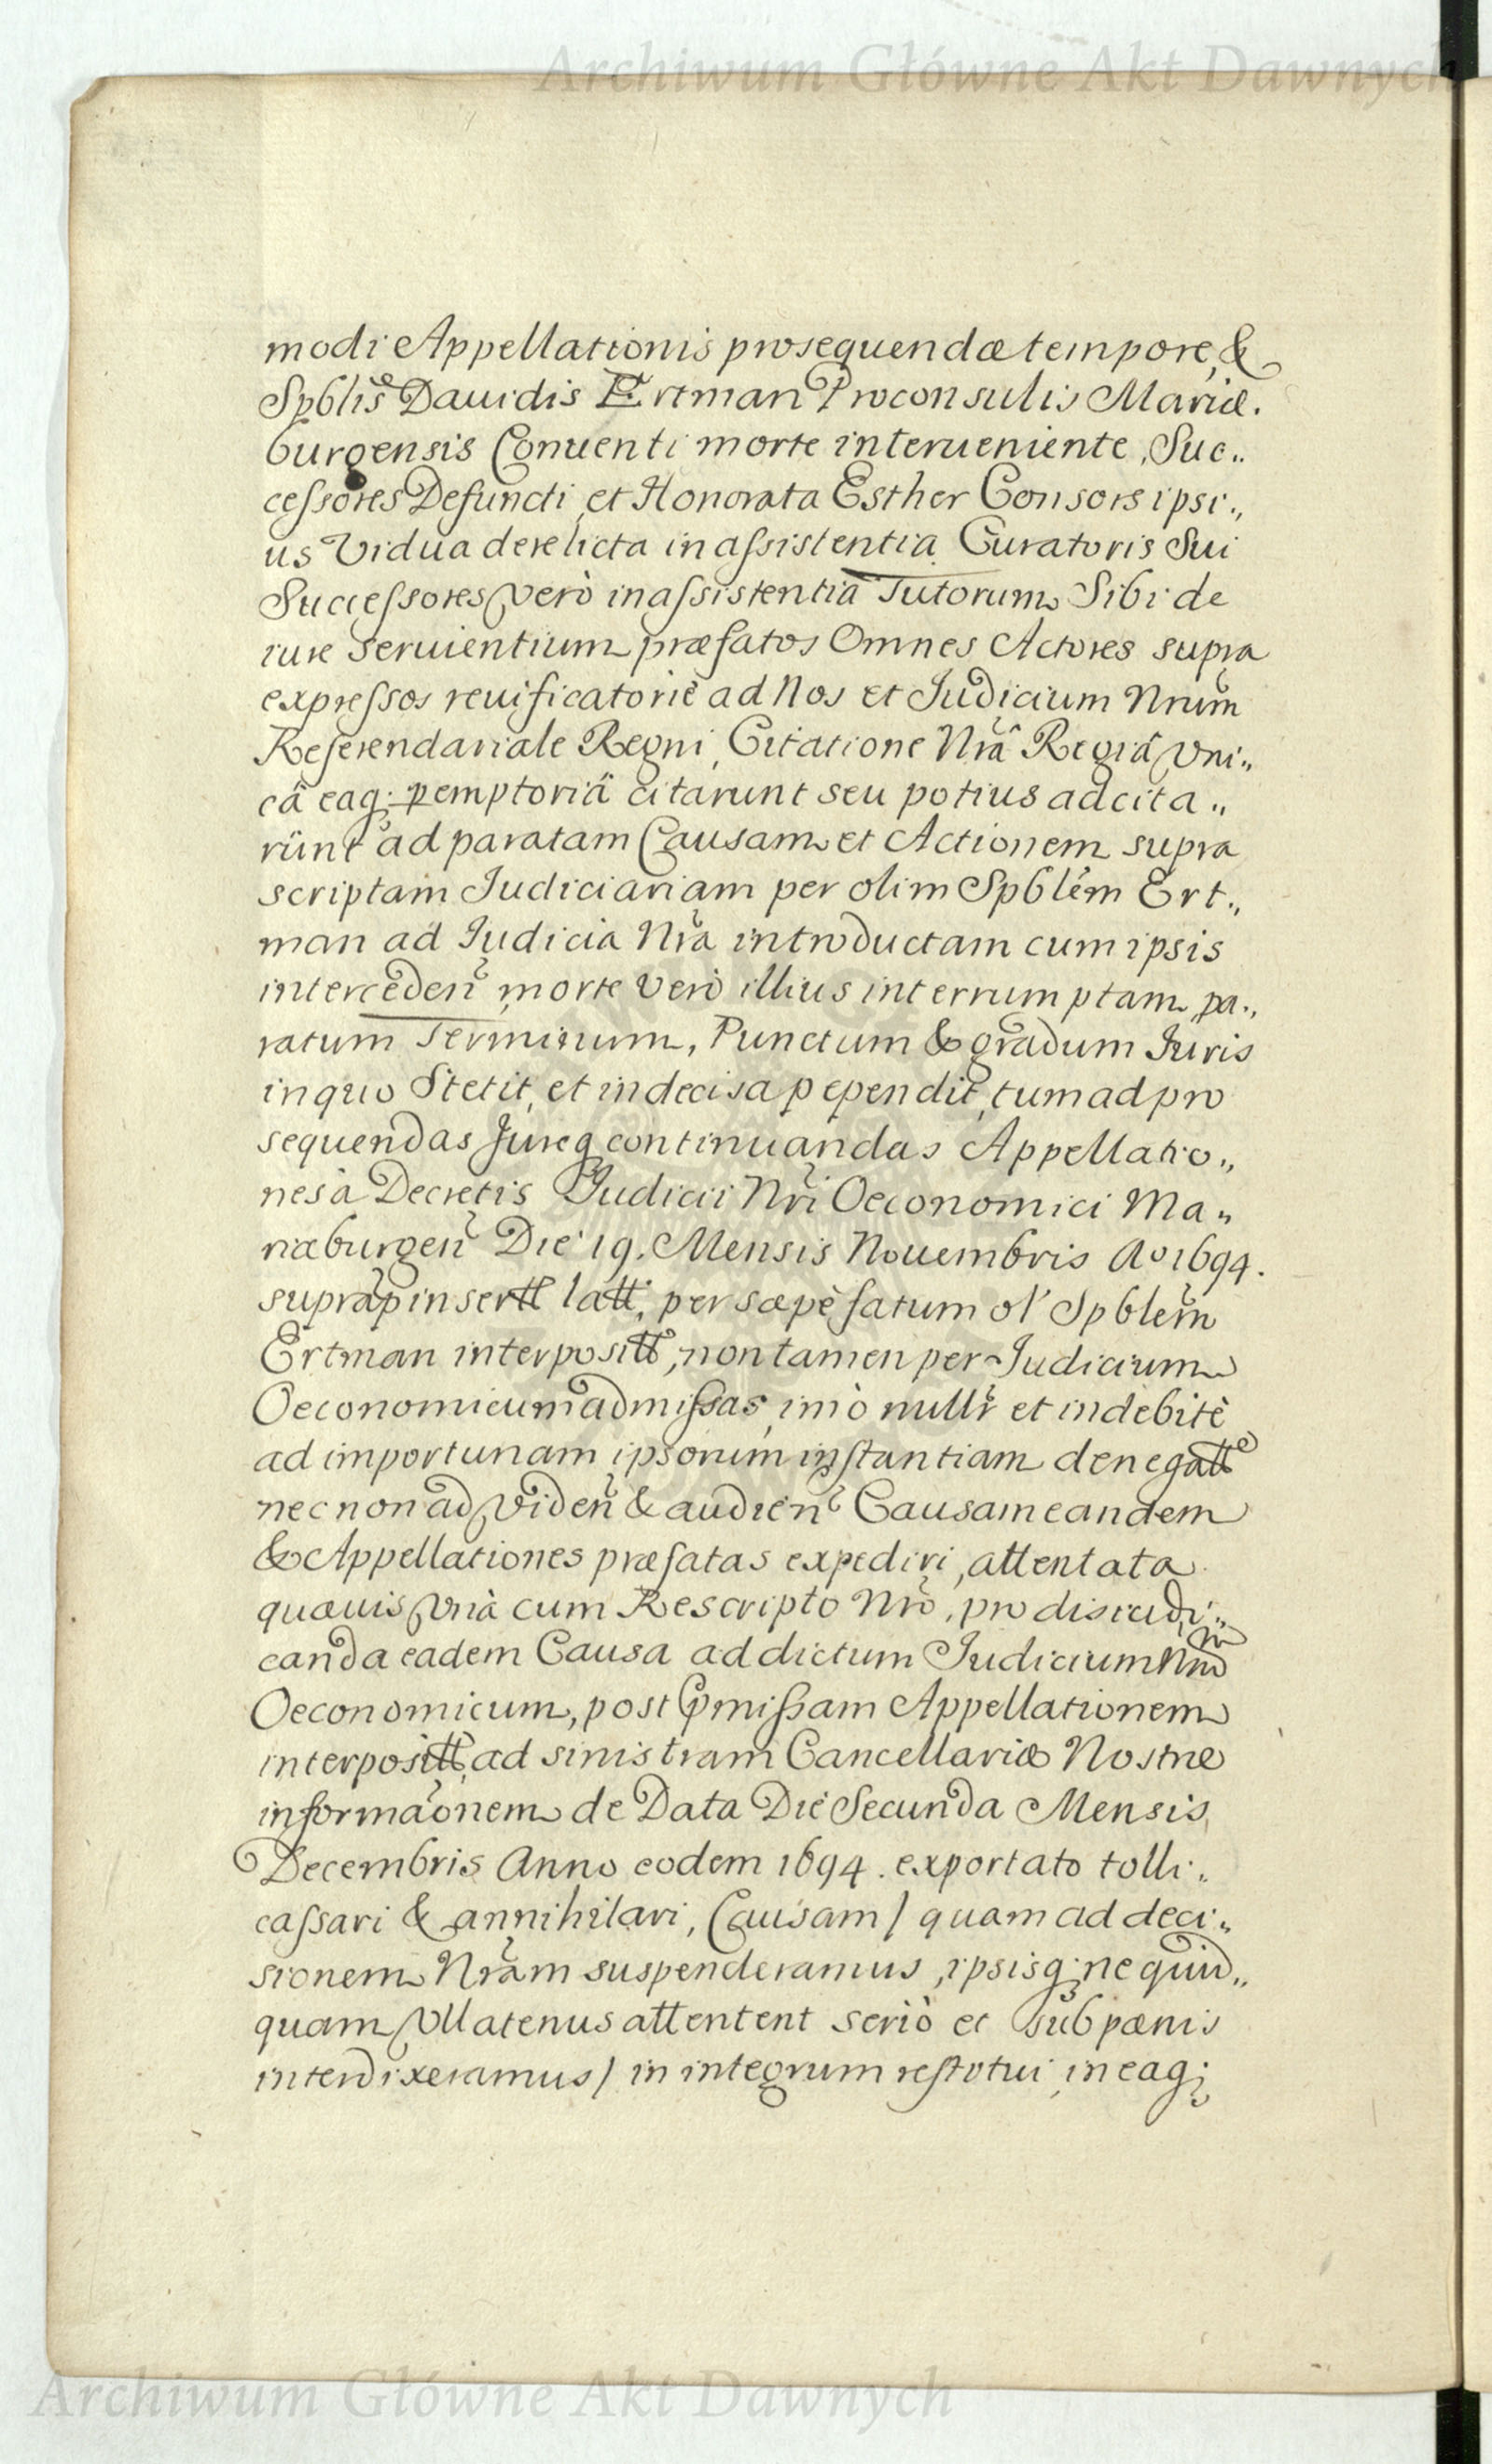 Archiwum Główne Akt Dawnych
modi Appellationis prosequendæ tempore, &
Spblis Dauidis Ertman Proconsulis Mariæ.
burgensis Conuenti morte interueniente, Suc„
cessores Defuncti, et Honorata Esther Consors ipsi„
us Vidua derelicta in assistentia Curatoris Sui
Successores verò in assistentia Tutorum Sibi de
iure seruientium præfatos Omnes Actores supra
expressos reuificatoriè ad Nos et Judicium Nrum
Referendariale Regni, Citatione Nrâ Regiâ Vni„
câ eaq; pemptoriâ citarunt seu potius adcita„
runt ad paratam Causam et Actionem supra
scriptam Judiciariam per olim Spblem Ert„
man ad Judicia Nra introductam cum ipsis
interceden morte verò illius interrumptam, pa„
ratum Terminum, Punctum & gradum Juris
in quo Stetit, et indecisa pependit, tum ad pro
sequendas Jureq continuandas Appellatio„
nes à Decretis Judicii Nri Oeconomici Ma„
riæburgen Die 19. Mensis Nouembris Ao 1694.
supra insertt latt, per sæpè fatum ol' Spblem
Ertman interpositt, non tamen per Judicium
Oeconomicum admissas, imò nullr et indebitè
ad importunam ipsorum instantiam denegatt
nec non ad Viden & audien Causam eandem
& Appellationes præfatas expediri, attentata
quævis Vnà cum Rescripto Nro, pro disiudi„
canda eadem Causa ad dictum Judicium Nrm
Oeconomicum, post pmissam Appellationem
interpositt, ad sinistram Cancellariæ Nostræ
informaonem de Data Die Secunda Mensis
Decembris Anno eodem 1694. exportato tolli„
cassari & annihilari, Causam / quam ad deci„
sionem Nram suspenderamus, ipsisq; ne quid„
quam Vllatenus attentent seriò et sub pænis
interdixeramus / in integrum restotui, in eaq;
Archiwum Główne Akt Dawnych